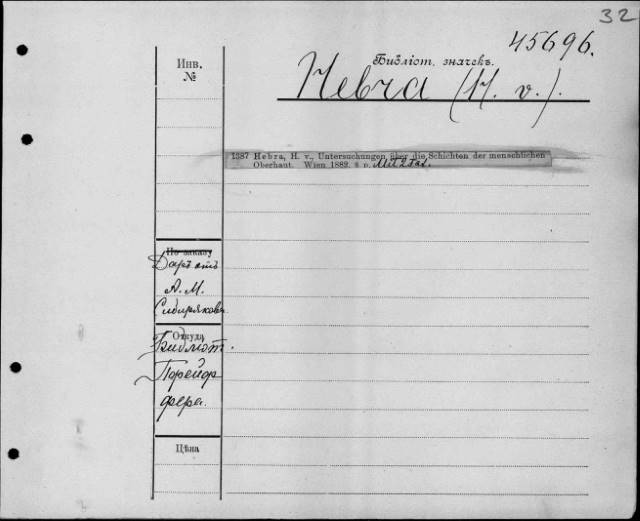 32
45696.
Инв.
№
Библіот. значекъ.
Hebra (H. v.).
1387 Hebra, H. v., Untersuchungen über die Schichten der menschlichen
Oberhaut. Wien 1882. 8 p. Mit 2 Taf.
По заказу
Даръ отъ
А. М.
Сибирякова
Откуда
Библіот.
Порейф
фера.
Цѣна